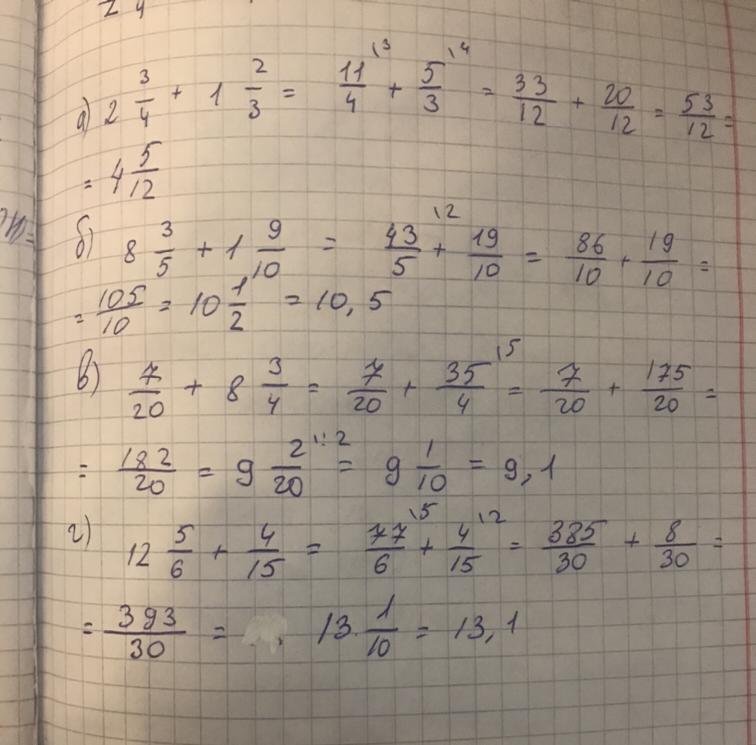 а) 2 3/4 + 1 2/3 = 11/4 \3 + 5/3 \4 = 33/12 + 20/12 = 53/12 =
= 4 5/12
б) 8 3/5 + 1 9/10 = 43/5 \2 + 19/10 = 86/10 + 19/10 =
= 105/10 = 10 1/2 = 10,5
в) 7/20 + 8 3/4 = 7/20 + 35/4 \5 = 7/20 + 175/20 =
= 182/20 = 9 2/20 \:2 = 9 1/10 = 9,1
г) 12 5/6 + 4/15 = 77/6 \5 + 4/15 \2 = 385/30 + 8/30 =
= 393/30 = 13 1/10 = 13,1